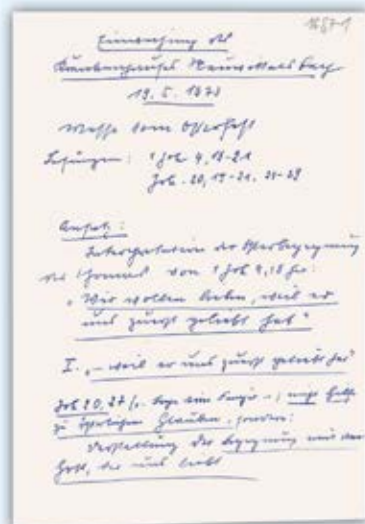 1657-1
Einweihung des
Krankenhauses Neuwittelsbach
19. 5. 1979
Messe vom Osterfest
Lesungen: 1 Joh 4, 18-21
Joh. 20, 19-21.
Ansatz:
Interpretation der Osterbegegnung
des Thomas von 1 Joh 4, 19 her:
"Wir wollen lieben, weil er
uns zuerst geliebt hat"
I. "- weil er uns zuerst geliebt hat"
Joh 20, 27 nicht
zu Glauben, sondern:
Darstellung der Begegnung mit dem
Gott, der uns liebt